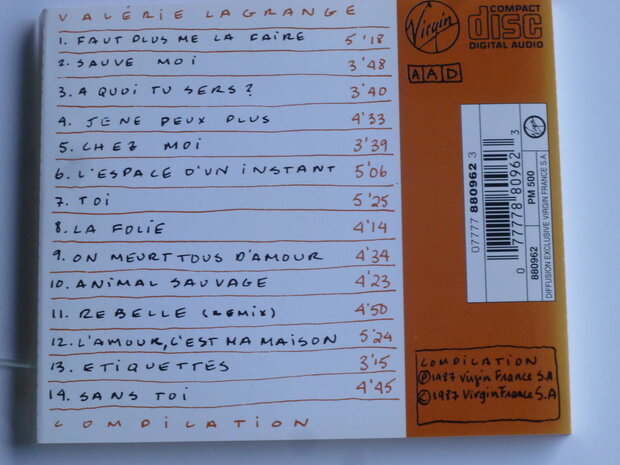 VALÉRIE LAGRANGE
1. FAUT PLUS ME LA FAIRE 5'18
2. SAUVE MOI 3'48
3. A QUOI TU SERS? 3'40
4. JE NE PEUX PLUS 4'33
5. CHEZ MOI 3'39
6. L'ESPACE D'UN INSTANT 5'06
7. TOI 5'25
8. LA FOLIE 4'14
9. ON MEURT TOUS D'AMOUR 4'34
10. ANIMAL SAUVAGE 4'23
11. REBELLE (REMIX) 4'50
12. L'AMOUR, C'EST MA MAISON 5'24
13. ETIQUETTES 3'15
14. SANS TOI 4'45
COMPILATION
Virgin
COMPACT
disc
DIGITAL AUDIO
AAD
07777 880962 3
0 77778 80962 3
Virgin
880962
PM 500
DIFFUSION EXCLUSIVE VIRGIN FRANCE S.A.
COMPILATION
℗ 1987 Virgin France S.A
© 1987 Virgin France S.A